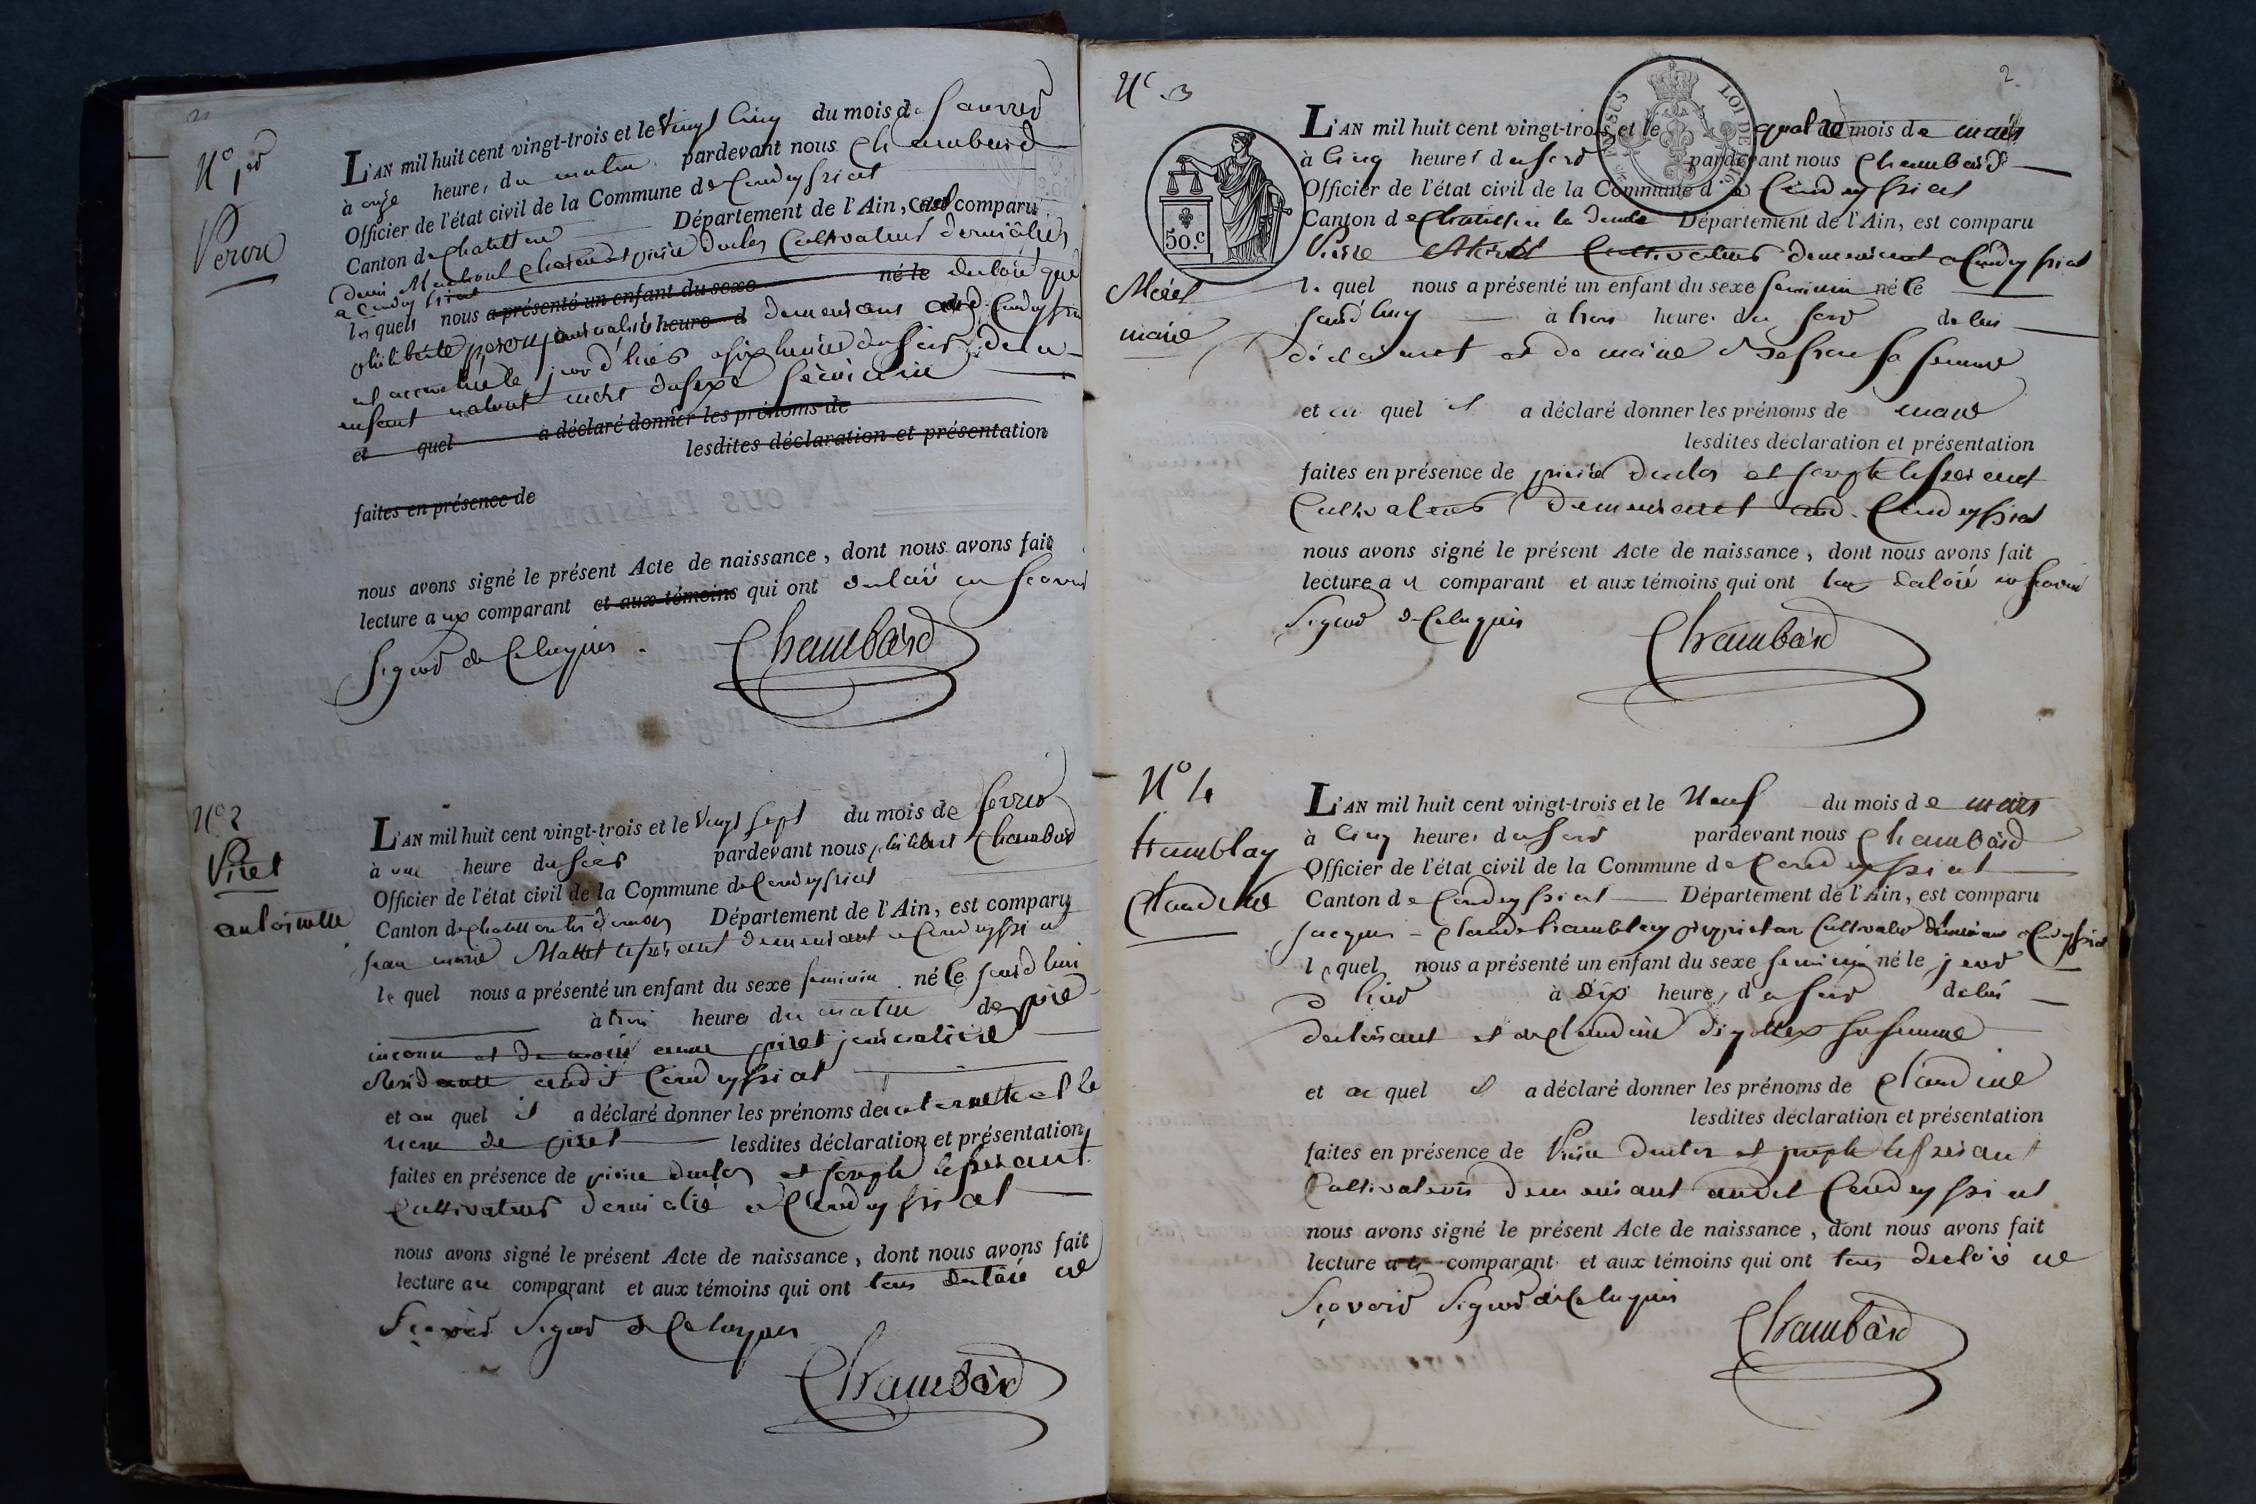 N° 1er
Peron
L'AN mil huit cent vingt-trois et le vingt cinq du mois de janvier
à onze heures du matin pardevant nous Chambard
Officier de l'état civil de la Commune de Condeyssiat
Canton de Chatillon Département de l'Ain, comparu
Denis et pierre duclos Cultivateurs domiciliés
a Condeyssiat
lesquels nous a présenté un enfant du sexe né le declaré que
philiberte heure d demeurant Condeyssiat
est accouchée le jour d'hier a six heures du soir d'un
enfant mort du sexe féminin
et quel a déclaré donner les prénoms de
lesdites déclaration et présentation
faites en présence de
nous avons signé le présent Acte de naissance, dont nous avons fait
lecture aux comparant et aux témoins qui ont declaré ne scavoir
signer de ce Chambard
N° 2
Piret
antoinette
L'AN mil huit cent vingt-trois et le vingt sept du mois de fevrier
à une heure du soir pardevant nous philibert Chambard
Officier de l'état civil de la Commune de Condeyssiat
Canton de Chatillon les dombes Département de l'Ain, est comparu
jean marie demeurant a Condeyssiat
le quel nous a présenté un enfant du sexe feminin né le jourd'hui
à trois heures du matin de père
inconnu et de anne piret journalière
Residante audit Condeyssiat
et au quel il a déclaré donner les prénoms de antoinette et le
nom de piret lesdites déclaration et présentation
faites en présence de pierre duclos et joseph
Cultivateurs domicilié a Condeyssiat
nous avons signé le présent Acte de naissance, dont nous avons fait
lecture au comparant et aux témoins qui ont tous declaré ne
scavoir signer de ce
Chambard
N° 3
2.
50.c
marie
L'AN mil huit cent vingt-trois et le quatre du mois de mars
à cinq heures du soir pardevant nous Chambard
Officier de l'état civil de la Commune de Condeyssiat
Canton de Chatillon Département de l'Ain, est comparu
Pierre Cultivateur demeurant a Condeyssiat
le quel nous a présenté un enfant du sexe feminin né le
jourd'huy à trois heures du soir de lui
déclarant et de marie sa femme
et au quel il a déclaré donner les prénoms de marie
lesdites déclaration et présentation
faites en présence de pierre duclos et joseph
Cultivateurs demeurant aud. Condeyssiat
nous avons signé le présent Acte de naissance, dont nous avons fait
lecture au comparant et aux témoins qui ont tous declaré ne scavoir
signer de ce
Chambard
N° 4
tramblay
Claudine
L'AN mil huit cent vingt-trois et le neuf du mois de mars
à cinq heures du soir pardevant nous Chambard
Officier de l'état civil de la Commune de Condeyssiat
Canton de Condeyssiat Département de l'Ain, est comparu
jacques - Claude tramblay propriétaire Cultivateur demeurant a Condeyssiat
le quel nous a présenté un enfant du sexe feminin né le jour
d'hier à dix heures du soir de lui
declarant et de Claudine sa femme
et au quel il a déclaré donner les prénoms de Claudine
lesdites déclaration et présentation
faites en présence de Pierre duclos et joseph
Cultivateurs demeurant audit Condeyssiat
nous avons signé le présent Acte de naissance, dont nous avons fait
lecture comparant et aux témoins qui ont tous declaré ne
scavoir signer de ce
Chambard